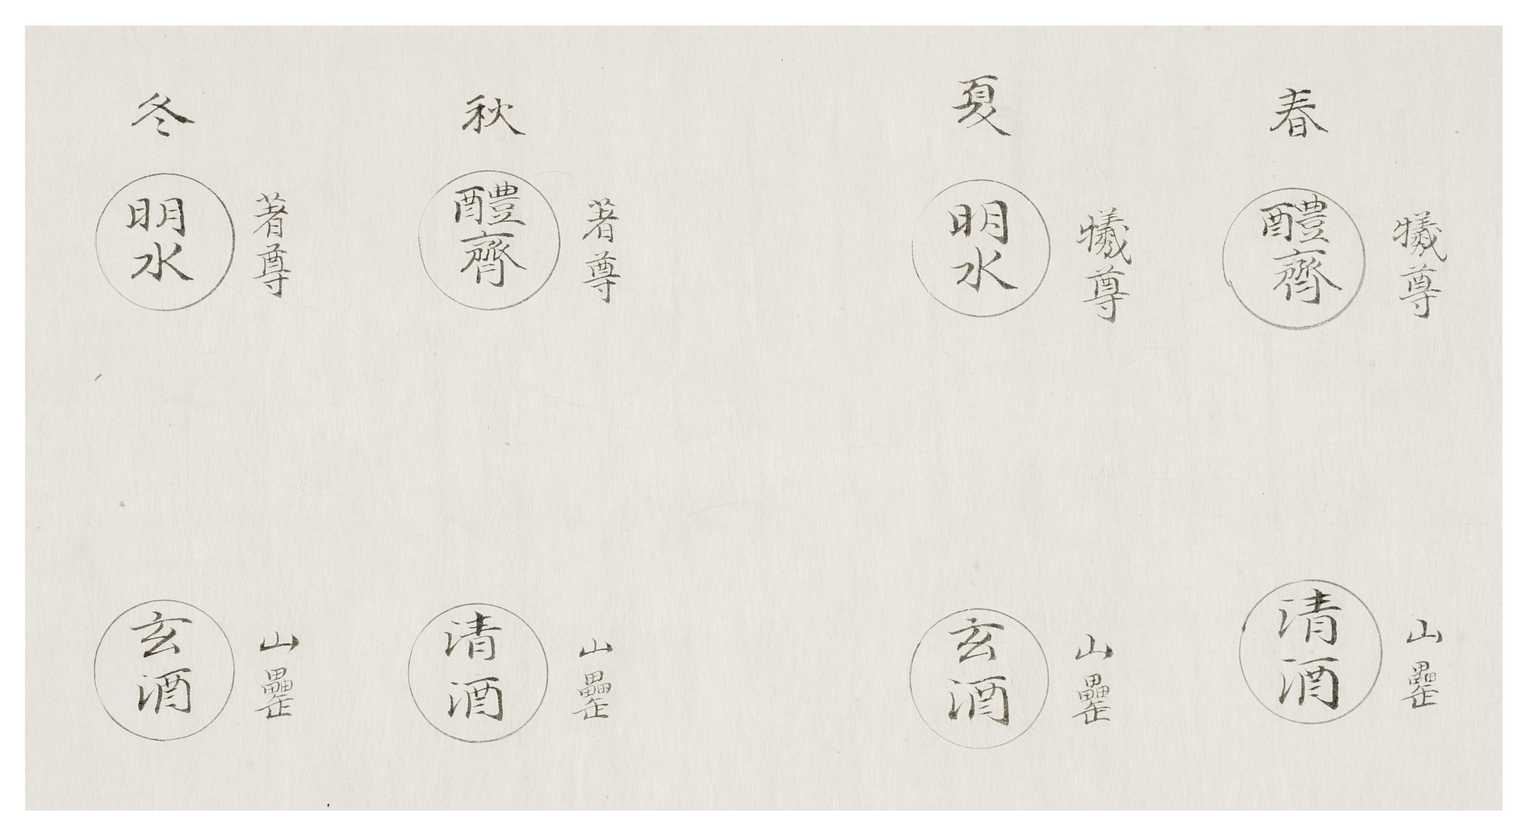 春
醴齊
犧尊
清酒
山罍
夏
明水
犧尊
玄酒
山罍
秋
醴齊
著尊
清酒
山罍
冬
明水
著尊
玄酒
山罍